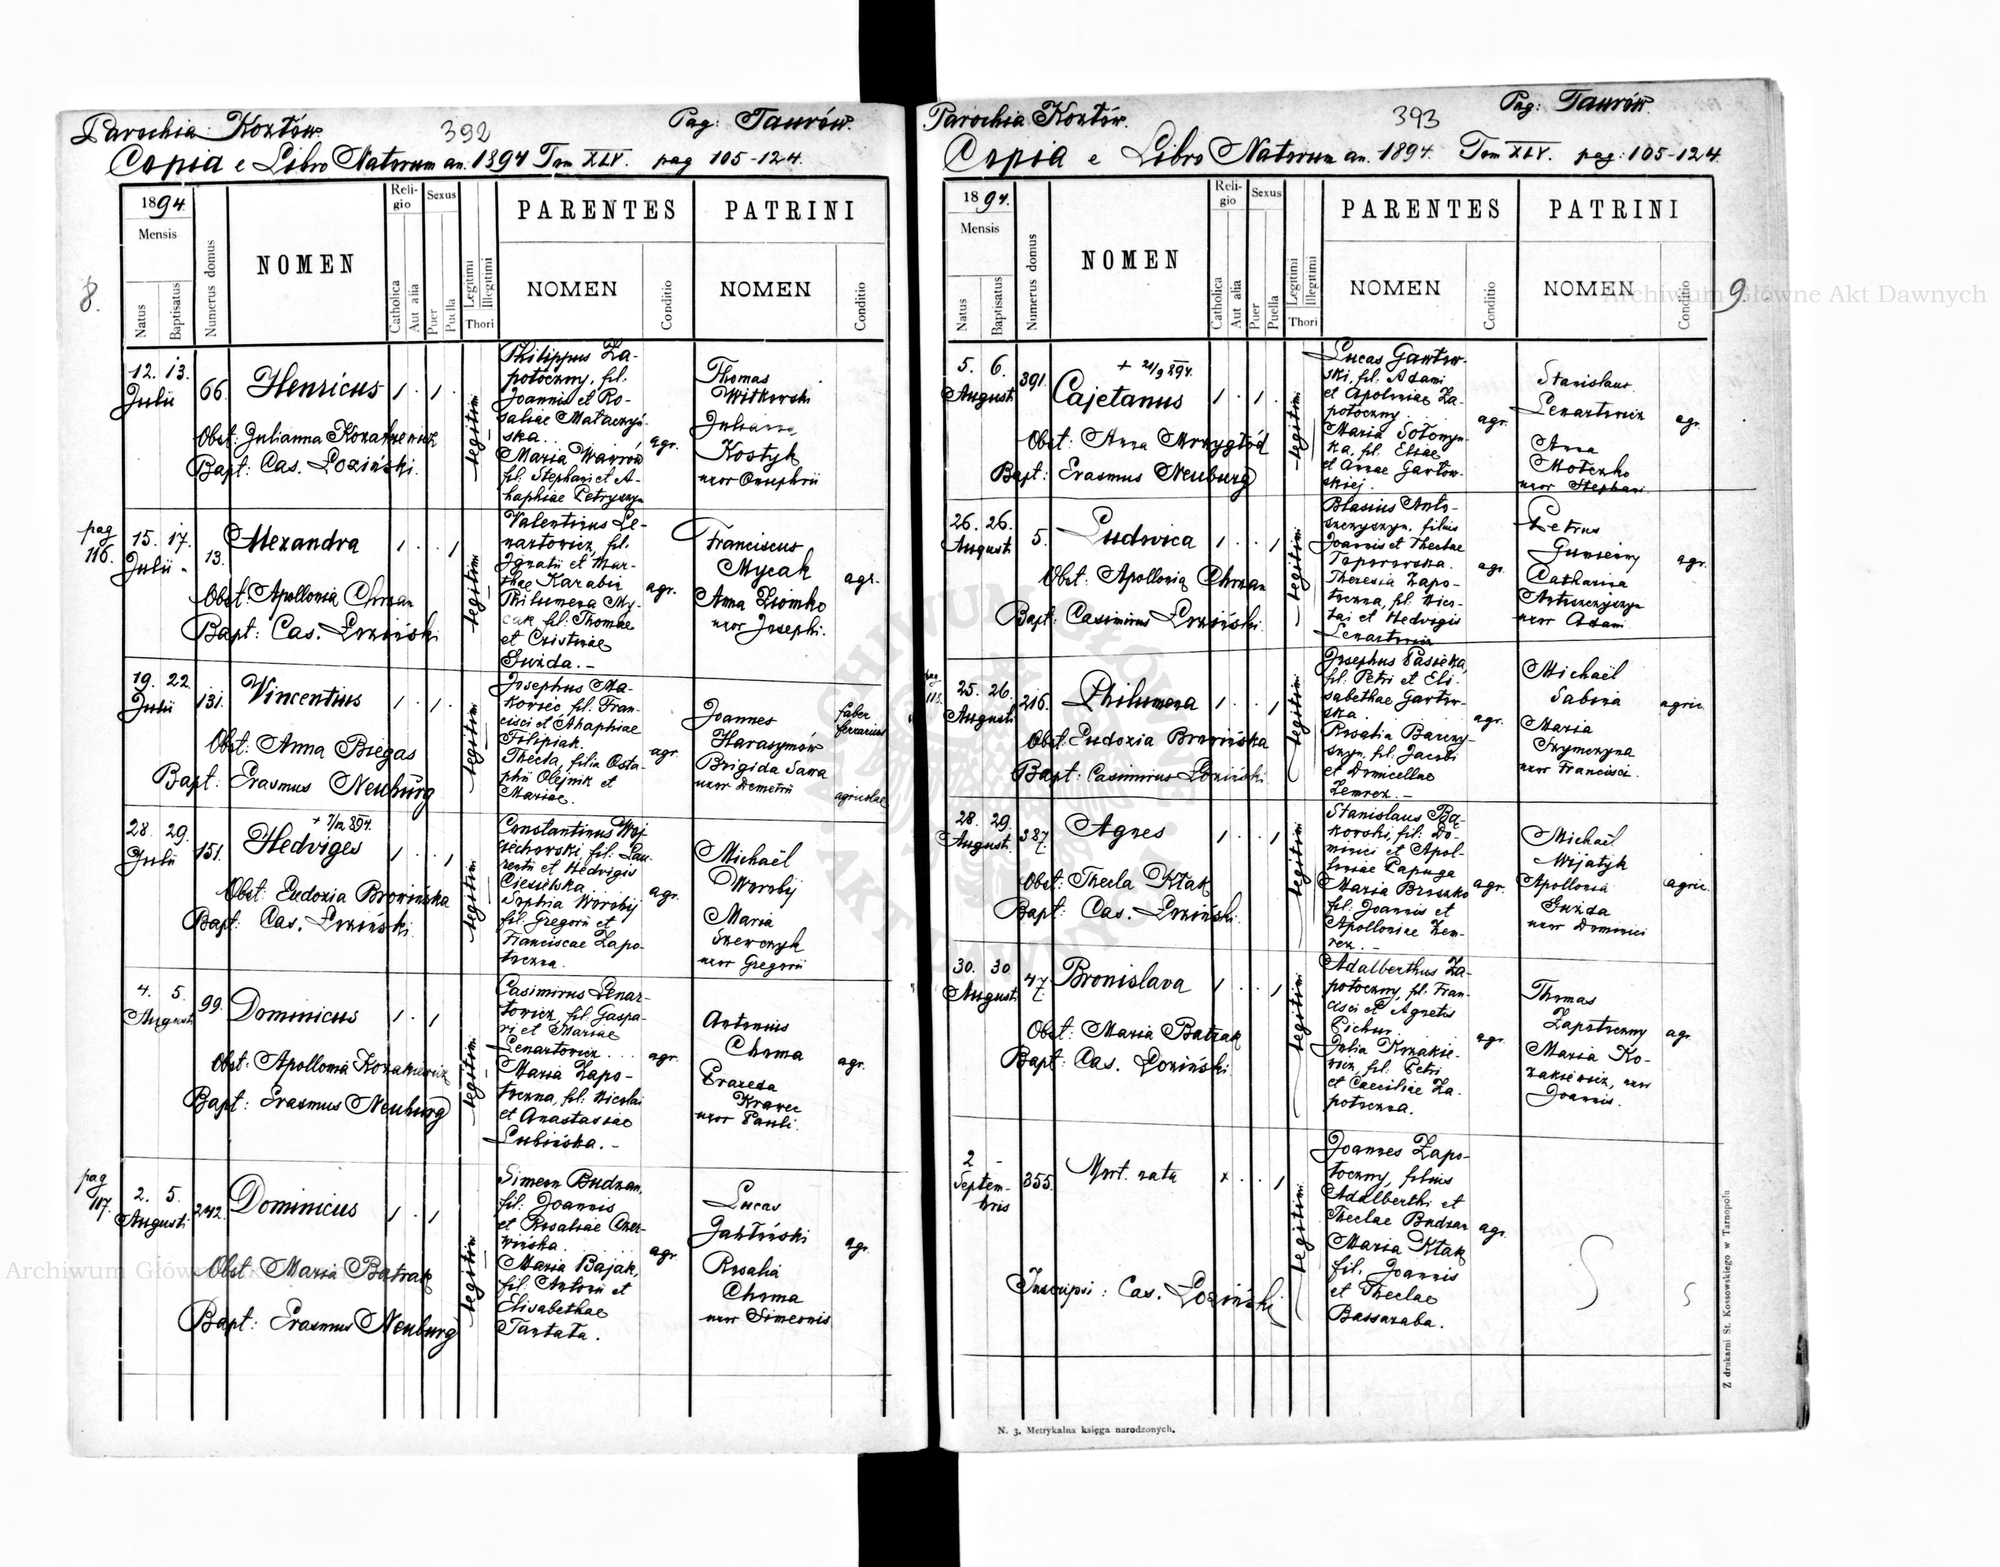 Parochia: Kozłów. 392 Pag: Taurów.
Copia e Libro Natorum an. 1894 Tom XLV. pag 105-124.
1894.
Mensis
Natus
Baptisatus
Numerus domus
NOMEN
Religio
Catholica
Aut alia
Sexus
Puer
Puella
Legitimi
Illegitimi
Thori
PARENTES
NOMEN
Conditio
PATRINI
NOMEN
Conditio
8.
12. 13.
Julii
66.
Henricus
1 . 1 .
legitimi
Obst: Julianna Kozakiewicz
Bapt: Cas. Łoziński.
Philippus Za-
potoczny, fil.
Joannis et Ro-
saliae Mataczyń-
ska.
Maria Wawrów
fil: Stephani et A-
haphiae Petryszyn
agr.
Thomas
Witkowski
Julianna
Kostyk
uxor Onuphrii
pag
116.
15. 17.
Julii
13.
Alexandra
1 . . 1
legitimi
Obst: Apollonia Chrzan
Bapt: Cas. Łoziński
Valentinus Le-
nartowicz, fil.
Ignatii et Mar-
thae Karabin
Philumena My-
cak, fil: Thomae
et Cristinae
Guzda. -
agr.
Franciscus
Mycak
Anna Ziomko
uxor Josephi.
agr.
19. 22.
Julii
131.
Vincentius
1 . 1 .
legitimi
Obst: Anna Biegas
Bapt: Erasmus Neuburg
Josephus Ma-
kowiec fil: Fran-
cisci et Ahaphiae
Filipiak.
Thecla, filia Osta-
phii Olejnik et
Mariae.
agr.
Joannes
Harasymów
Brigida Sawa
uxor Demetrii
faber
ferrarius
agricolae
28. 29.
Julii
151.
+ 7/12 894.
Hedviges
1 . . 1
legitimi
Obst: Eudoxia Browińska
Bapt: Cas. Łoziński.
Constantinus Woj-
ciechowski, fil: Lau-
rentii et Hedvigis
Ciesielska
Sophia Worobij
fil: Gregorii et
Franciscae Zapo-
toczna.
agr.
Michaël
Worobij
Maria
Szewczyk
uxor Gregorii
4. 5.
Augusti
99.
Dominicus
1 . 1
legitimi
Obst: Apollonia Kozakiewicz
Bapt: Erasmus Neuburg
Casimirus Lenar-
towicz, fil: Gaspa-
ri et Mariae
Lenartowicz.
Maria Zapo-
toczna, fil: Nicolai
et Anastasiae
Lubińska. -
agr.
Antonius
Choma
Praxeda
Krawec
uxor Pauli.
agr.
pag
117.
2. 5.
Augusti
242.
Dominicus
1 . 1
legitimi
Obst: Maria Batrak
Bapt: Erasmus Neuburg
Simeon Budzan,
fil: Joannis
et Rosaliae Czer-
wińska
Maria Bajak,
fil: Antonii et
Elisabethae
Tantała.
agr.
Lucas
Jabłński
Rosalia
Choma
uxor Simeonis
agr.
Parochia Kozłów. 393 Pag: Taurów.
Copia e Libro Natorum an. 1894. Tom XLV. pag: 105-124.
1894.
Mensis
Natus
Baptisatus
Numerus domus
NOMEN
Religio
Catholica
Aut alia
Sexus
Puer
Puella
Legitimi
Illegitimi
Thori
PARENTES
NOMEN
Conditio
PATRINI
NOMEN
Conditio
9.
5. 6.
Augusti
391.
Cajetanus
1 . 1 .
legitimi
Obst: Anna Mrzygłód
Bapt: Erasmus Neuburg
Lucas Gawłow-
ski, fil: Adami
et Apoloniae Za-
potoczny
Maria Sołomyn-
ka, fil: Eliae
et Annae Gawłow-
skiej.
agr.
Stanislaus
Lenartowicz
Anna
Moteczko
uxor Stephani
agr.
26. 26.
Augusti
5.
Ludovica
1 . . 1
legitimi
Obst: Apollonia Chrzan
Bapt: Casimirus Łoziński
Blasius Anto-
szczyszyn, filius
Joannis et Theclae
Toporowska.
Theresia Zapo-
toczna, fil: Nico-
lai et Hedvigis
Lenartowicz
agr.
Petrus
Catharina
uxor Adami
agr.
pag
118.
25. 26.
Augusti
216.
Philumena
1 . . 1
legitimi
Obst: Eudoxia Browińska
Bapt: Casimirus Łoziński
Josephus Pasieka,
fil: Petri et Eli-
sabethae Gawłow-
ska.
Rosalia Barczy-
szyn, fil: Jacobi
et Domicellae
Zemrez. -
agr.
Michaël
Sabina
Maria
Szymczyna
uxor Francisci.
agric.
28. 29.
Augusti
387.
Agnes
1 . . 1
legitimi
Obst: Thecla Kłak
Bapt: Cas. Łoziński
Stanislaus Bą-
kowski, fil: Do-
minici et Apol-
loniae Papuga
Maria Broszko
fil: Joannis et
Apolloniae Zem-
rez. -
agr.
Michaël
Wijatyk
Apollonia
Guzda
uxor Dominici
agric.
30. 30
Augusti
47.
Bronislava
1 . . 1
legitimi
Obst: Maria Batrak
Bapt: Cas. Łoziński
Adalberthus Za-
potoczny, fil: Fran-
cisci et Agnetis
Cichur.
Julia Kozakie-
wicz, fil: Petri
et Caeciliae Za-
potoczna.
agr.
Thomas
Zapotoczny
Maria Ko-
zakiewicz, uxor
Joannis.
agr.
2 -
Septem-
bris
355.
Mort. nata
x . . 1
legitimi
Inscripsi: Cas. Łoziński
Joannes Zapo-
toczny, filius
Adalberthi et
Theclae Budzan
Maria Kłak
fil. Joannis
et Theclae
Bassaraba.
agr.
N. 3. Metrykalna księga narodzonych.
Z drukarni St. Kossowskiego w Tarnopolu
Archiwum Główne Akt Dawnych
ARCHIWUM GŁÓWNE AKT DAWNYCH